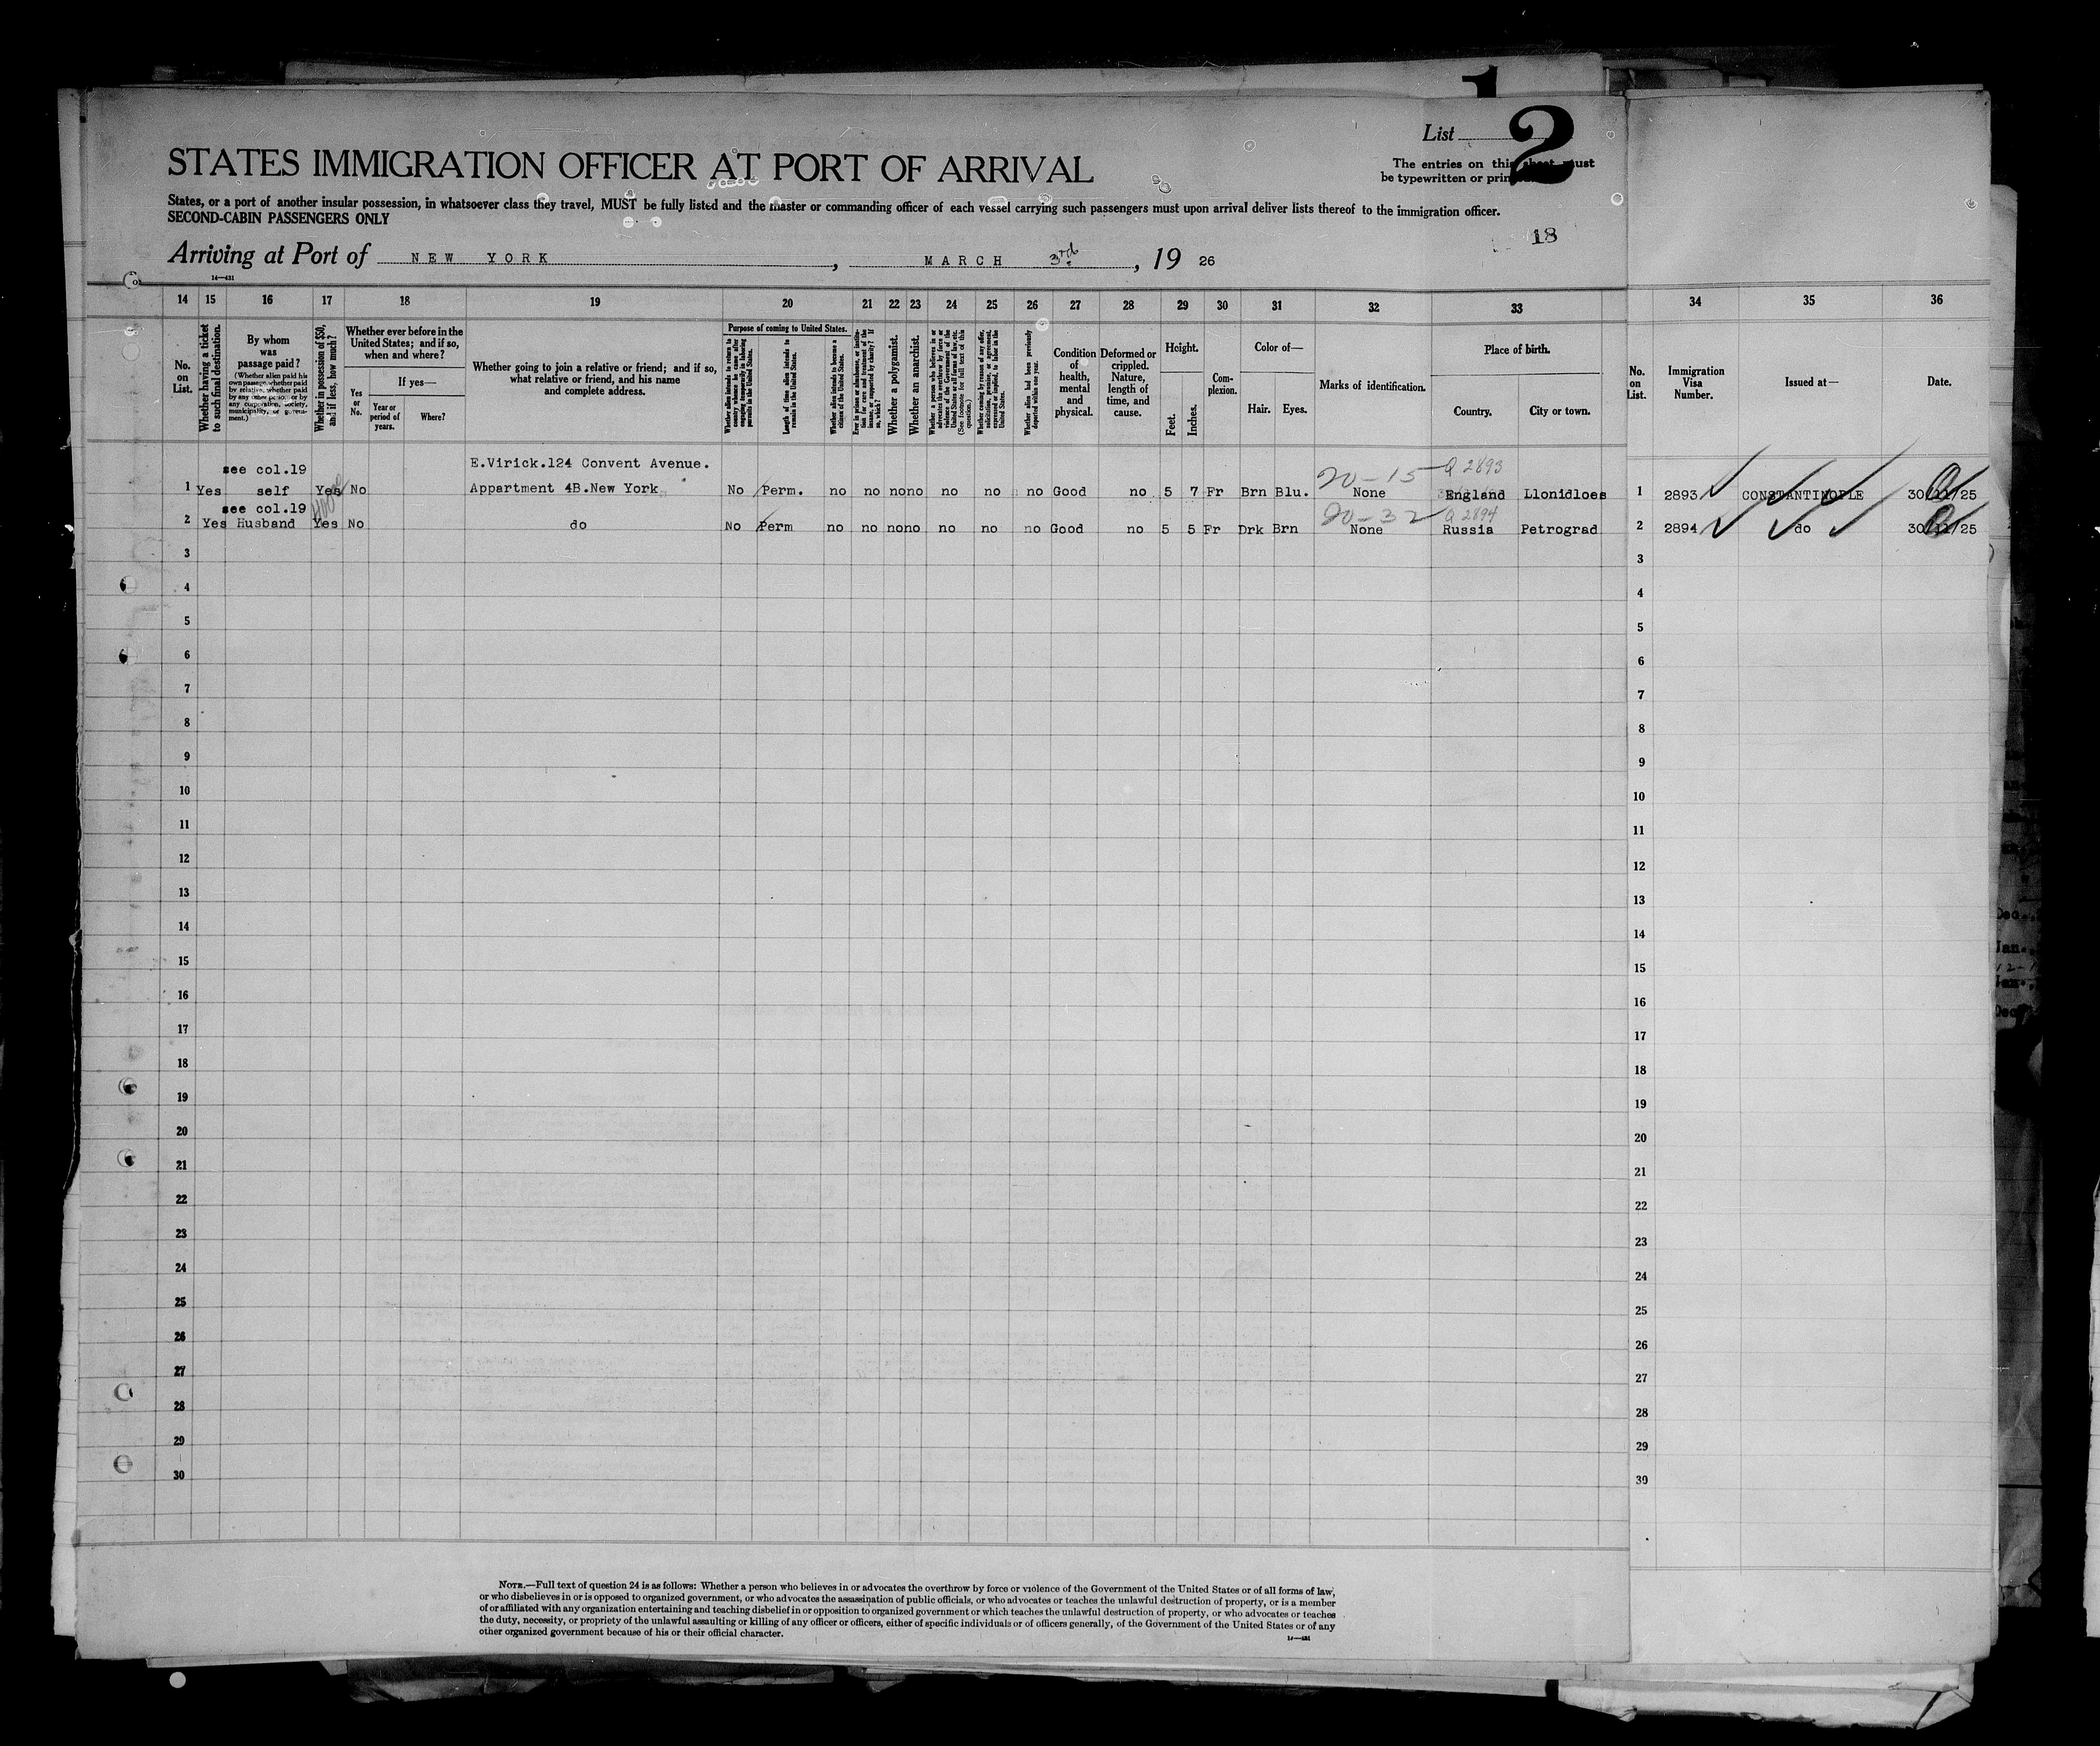 List 2
The entries on this sheet must
be typewritten or prin
STATES IMMIGRATION OFFICER AT PORT OF ARRIVAL
States, or a port of another insular possession, in whatsoever class they travel, MUST be fully listed and the master or commanding officer of each vessel carrying such passengers must upon arrival deliver lists thereof to the immigration officer.
SECOND-CABIN PASSENGERS ONLY
18
Arriving at Port of NEW YORK, MARCH 3rd, 19 26
14—431
14 15 16 17 18 19 20 21 22 23 24 25 26 27 28 29 30 31 32 33 34 35 36
No. on List.
Whether having a ticket to such final destination.
By whom was passage paid?
(Whether alien paid his own passage, whether paid by relative, whether paid by any other person, or by any corporation, society, municipality, or government.)
Whether in possession of $50, and if less, how much?
Whether ever before in the United States; and if so, when and where?
Yes or No.
If yes—
Year or period of years.
Where?
Whether going to join a relative or friend; and if so, what relative or friend, and his name and complete address.
Purpose of coming to United States.
Whether alien intends to return to country whence he came after engaging temporarily in laboring pursuits in the United States.
Length of time alien intends to remain in the United States.
Whether alien intends to become a citizen of the United States.
Whether a polygamist.
Whether an anarchist.
Whether alien had been previously deported within one year.
Condition of health, mental and physical.
Deformed or crippled. Nature, length of time, and cause.
Height.
Feet.
Inches.
Complexion.
Color of—
Hair.
Eyes.
Marks of identification.
Place of birth.
Country.
City or town.
No. on List.
Immigration Visa Number.
Issued at—
Date.
see col.19 E.Virick.124 Convent Avenue. 20-15 Q 2893
1 Yes self Yes No Appartment 4B.New York No Perm. no no no no no no no Good no 5 7 Fr Brn Blu. None England Llonidloes 1 2893 CONSTANTINOPLE 30/11/25
see col.19 20-32 Q 2894
2 Yes Husband Yes No do No Perm no no no no no no no Good no 5 5 Fr Drk Brn None Russia Petrograd 2 2894 do 30/11/25
3 3
4 4
5 5
6 6
7 7
8 8
9 9
10 10
11 11
12 12
13 13
14 14
15 15
16 16
17 17
18 18
19 19
20 20
21 21
22 22
23 23
24 24
25 25
26 26
27 27
28 28
29 29
30 30
NOTE.—Full text of question 24 is as follows: Whether a person who believes in or advocates the overthrow by force or violence of the Government of the United States or of all forms of law,
or who disbelieves in or is opposed to organized government, or who advocates the assassination of public officials, or who advocates or teaches the unlawful destruction of property, or is a member
of or affiliated with any organization entertaining and teaching disbelief in or opposition to organized government or which teaches the unlawful destruction of property, or who advocates or teaches
the duty, necessity, or propriety of the unlawful assaulting or killing of any officer or officers, either of specific individuals or of officers generally, of the Government of the United States or of any
other organized government because of his or their official character.
14—431